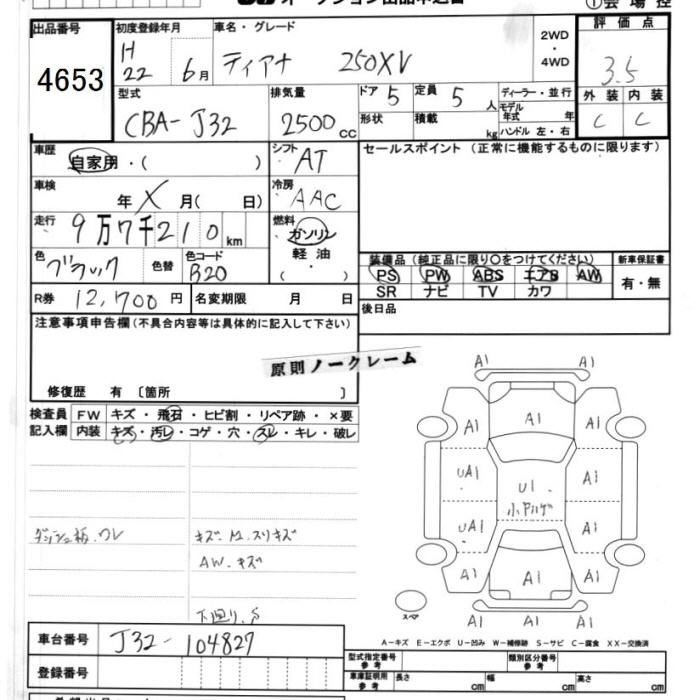 出品番号
4653
初度登録年月
H
22 6月
車名・グレード
ティアナ 250XV
2WD
・
4WD
評価点
3.5
外装 内装
C C
型式
CBA-J32
排気量
2500cc
ドア 5
定員 5人
形状
積載 kg
ディーラー・並行
モデル
年式 年
ハンドル 左・右
車歴
自家用・( )
シフト
AT
セールスポイント (正常に機能するものに限ります)
車検
年 X 月( 日)
冷房
AAC
走行
9万7千210km
燃料
ガソリン
軽油
・
( )
色
ブラック
色替
色コード
B20
装備品 (純正品に限り〇をつけてください)
PS PW ABS エアB AW
SR ナビ TV カワ
新車保証書
有・無
R券 12,700円
名変期限 月 日
後日品
注意事項申告欄(不具合内容等は具体的に記入して下さい)
原則ノークレーム
修復歴 有 〔箇所 〕
検査員
記入欄
FW キズ・飛石・ヒビ割・リペア跡・×要
内装 キズ・汚レ・コゲ・穴・スレ・キレ・破レ
ダッシュ板.ワレ
キズ.M.スリキズ
AW.キズ
下廻り.S
A1 A1
A1 A1 A1
UA1 U1 A1
小アルゲ
UA1 A1
A1 A1 A1
A1 A1
スペア
A-キズ E-エクボ U-凹み W-補修跡 S-サビ C-腐食 XX-交換済
車台番号
J32-104827
登録番号
型式指定番号
参考
類別区分番号
参考
車庫証明用
参考
長さ cm
幅 cm
高さ cm